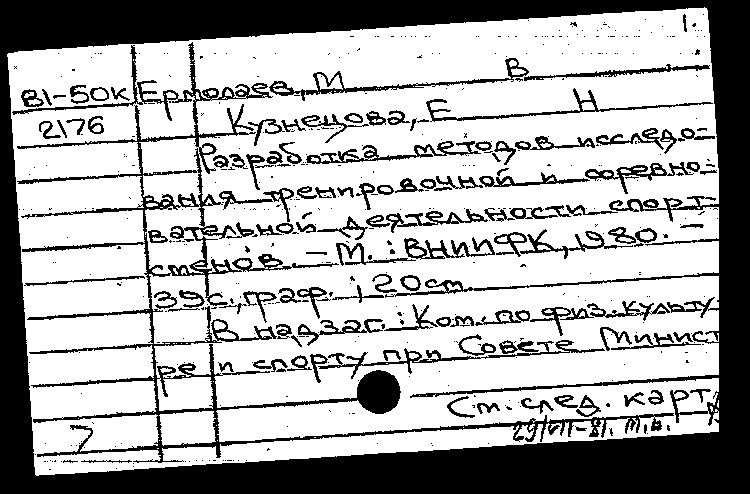 1.
81-50к Ермолаев, М В
2176 Кузнецова, Е Н
Разработка методов исследо-
вания тренировочной и соревно-
вательной деятельности спорт-
сменов. – М. : ВНИИФК, 1980. –
39 с., граф. ; 20 см.
В надзаг. : Ком. по физ. культу-
ре и спорту при Совете Минист
См. след. карт.
7 29/VII-81. М.В.